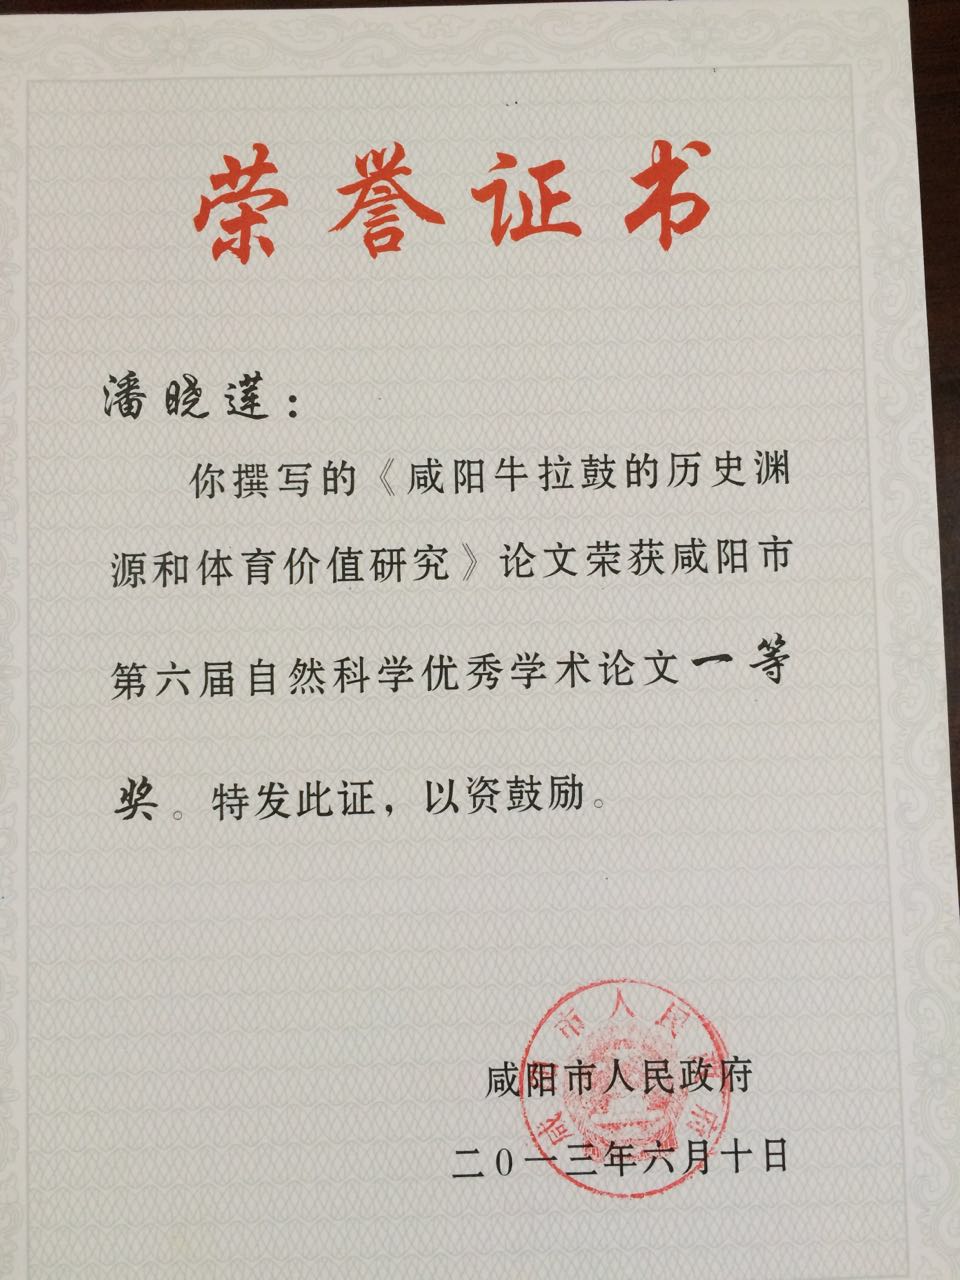 荣誉证书
潘晓莲：
你撰写的《咸阳牛拉鼓的历史渊
源和体育价值研究》论文荣获咸阳市
第六届自然科学优秀学术论文一等
奖。特发此证，以资鼓励。
咸阳市人民政府
咸阳市人民政府
二〇一三年六月十日